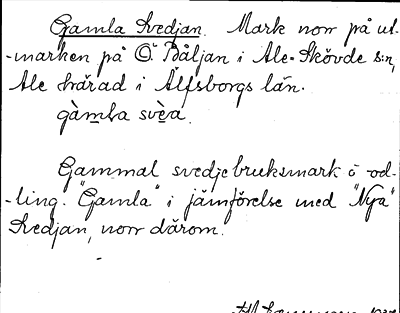 Gamla Svedjan. Mark norr på ut-
-marken på Ö. Påljan i Ale-Skövde s:n,
Ale härad i Älfsborgs län.
gàmḷa svèa.
Gammal svedjebruksmark o od-
-ling. "Gamla" i jämförelse med "Nya"
Svedjan, norr därom.